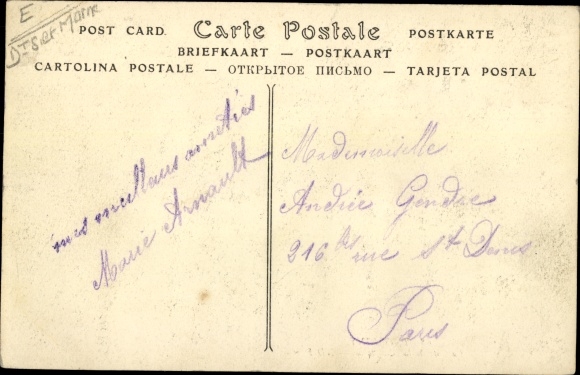 E
Dt S et Marne
POST CARD. Carte Postale POSTKARTE
BRIEFKAART — POSTKAART
CARTOLINA POSTALE — ОТКРЫТОЕ ПИСЬМО — TARJETA POSTAL
mes meilleurs amitiés
Marie Arnault
Mademoiselle
Andrée
216 bis rue St Denis
Paris